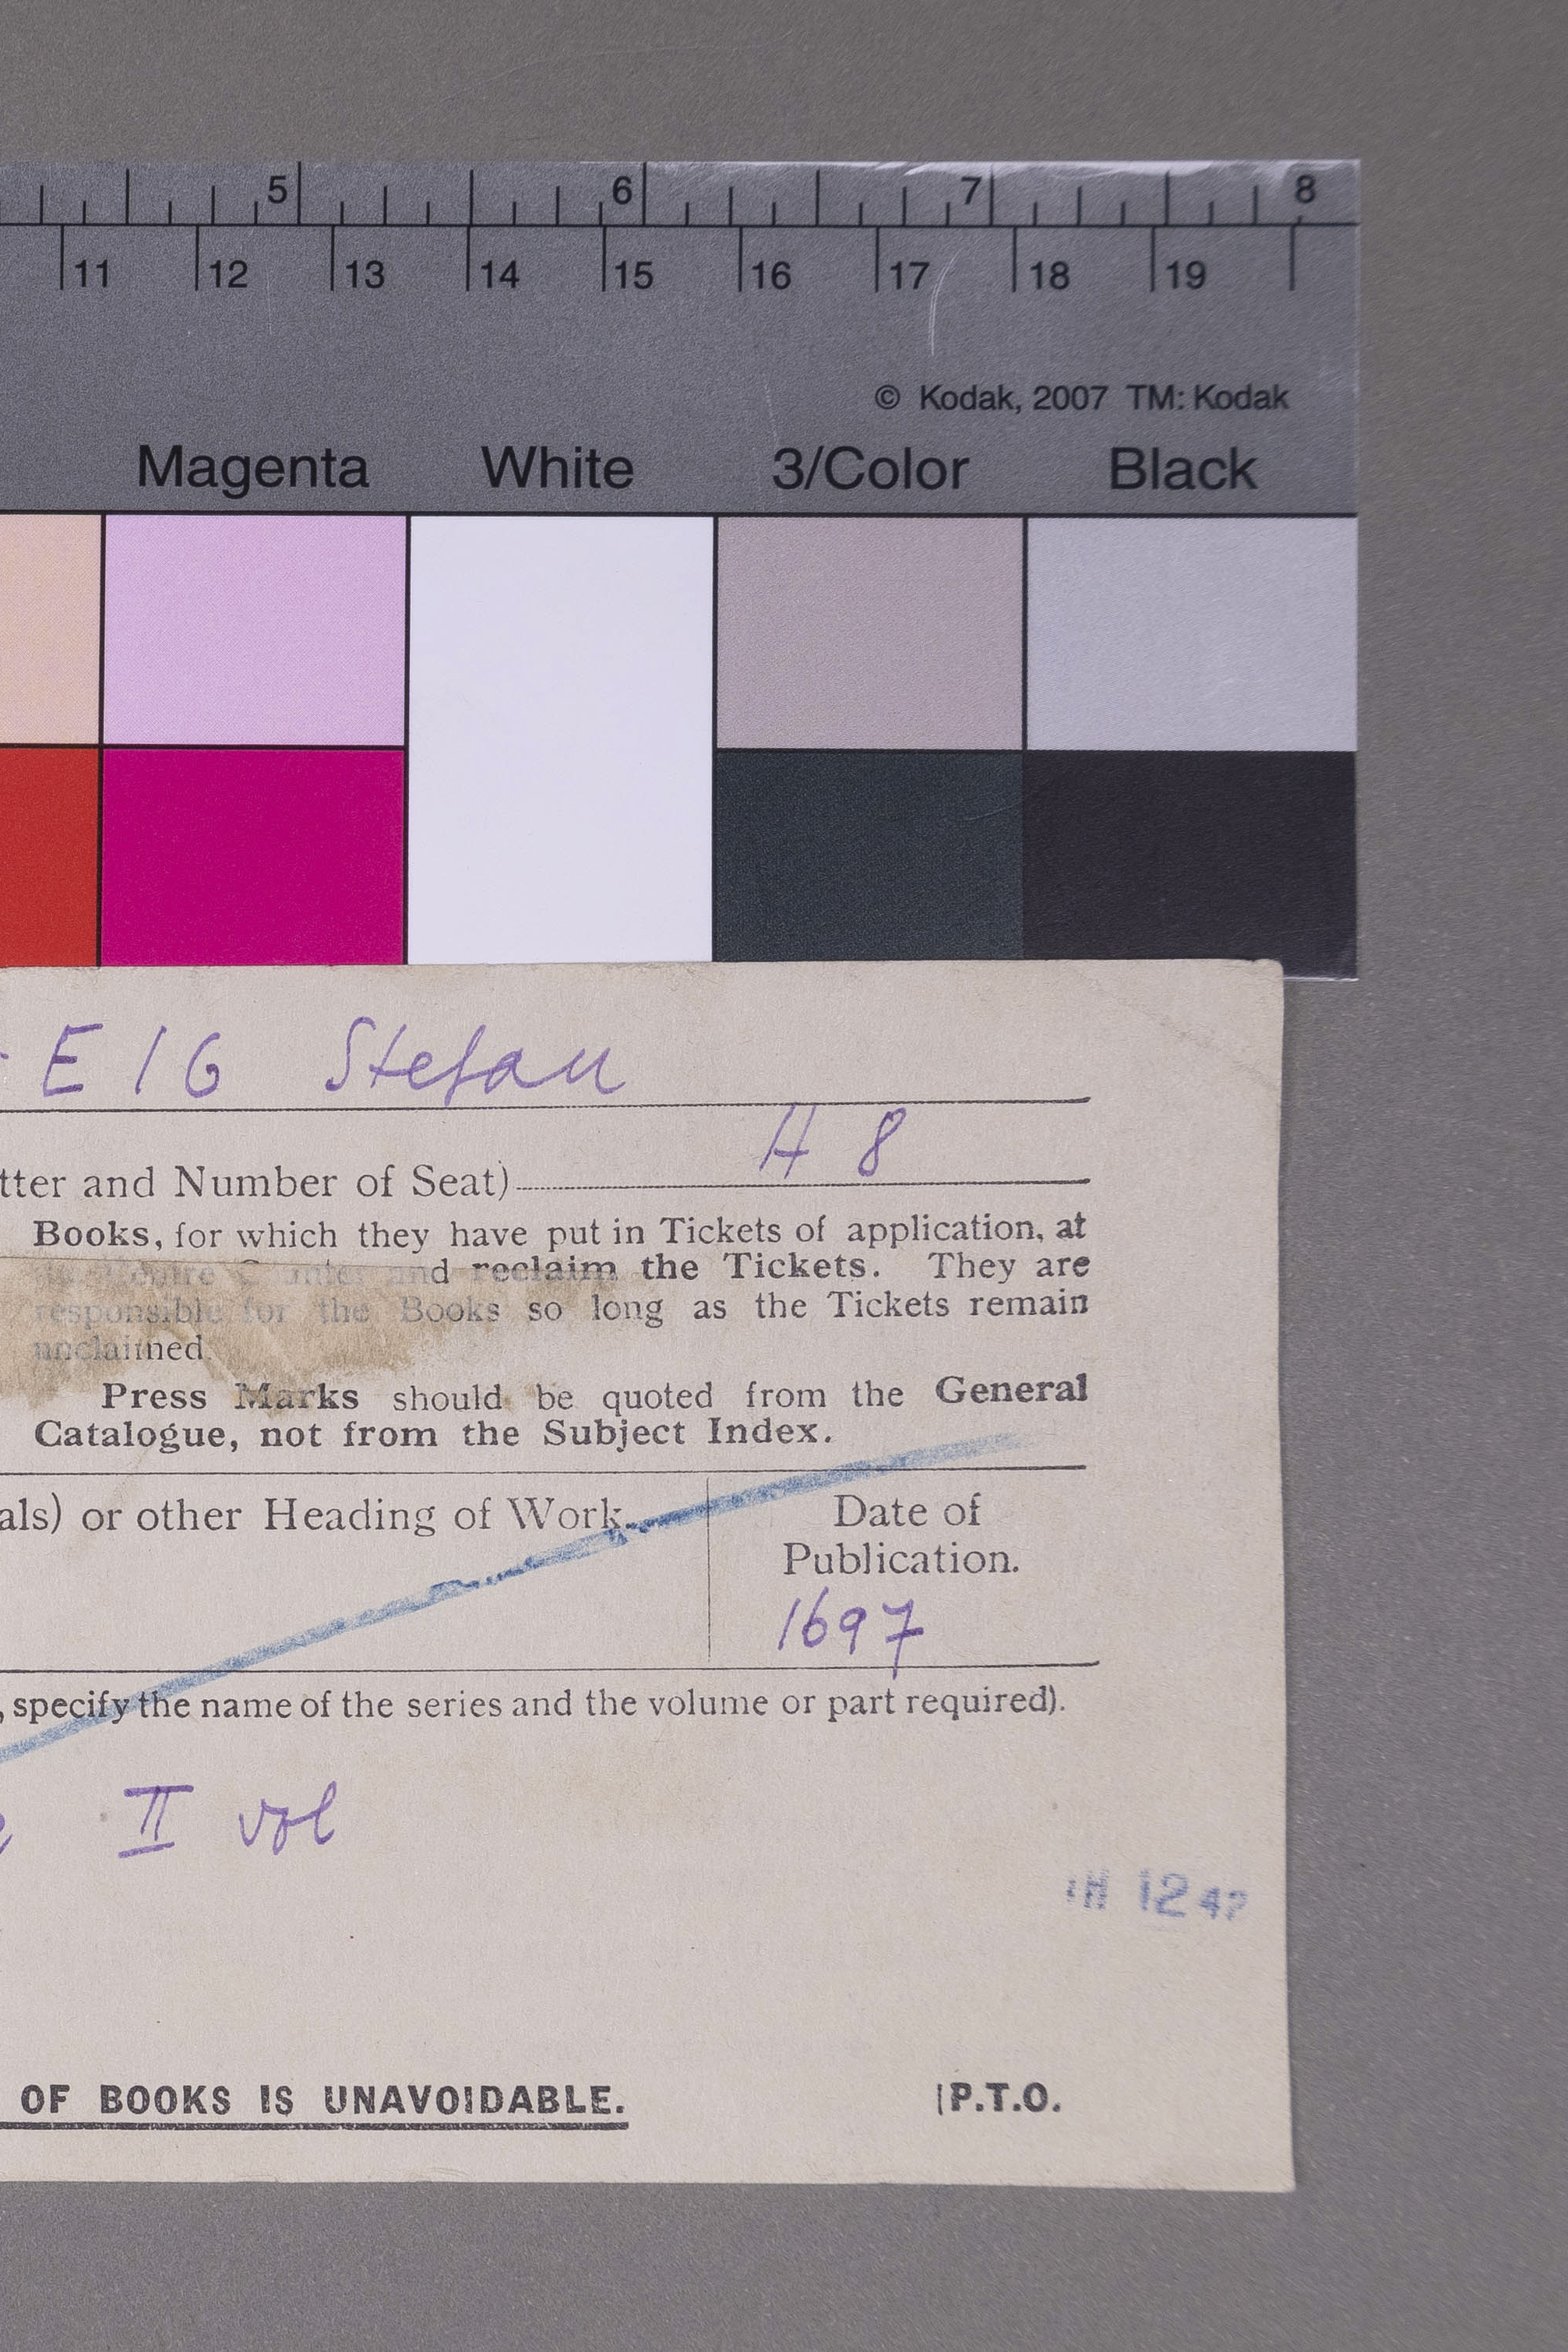 5 6 7 8
11 12 13 14 15 16 17 18 19
© Kodak, 2007 TM: Kodak
Magenta White 3/Color Black
E I G Stefan
A 8
tter and Number of Seat)
Books, for which they have put in Tickets of application, at
and reclaim the Tickets. They are
responsible for the Books so long as the Tickets remain
unclaimed.
Press Marks should be quoted from the General
Catalogue, not from the Subject Index.
als) or other Heading of Work.
Date of
Publication.
1697
, specify the name of the series and the volume or part required).
II vol
12 47
OF BOOKS IS UNAVOIDABLE.
P.T.O.